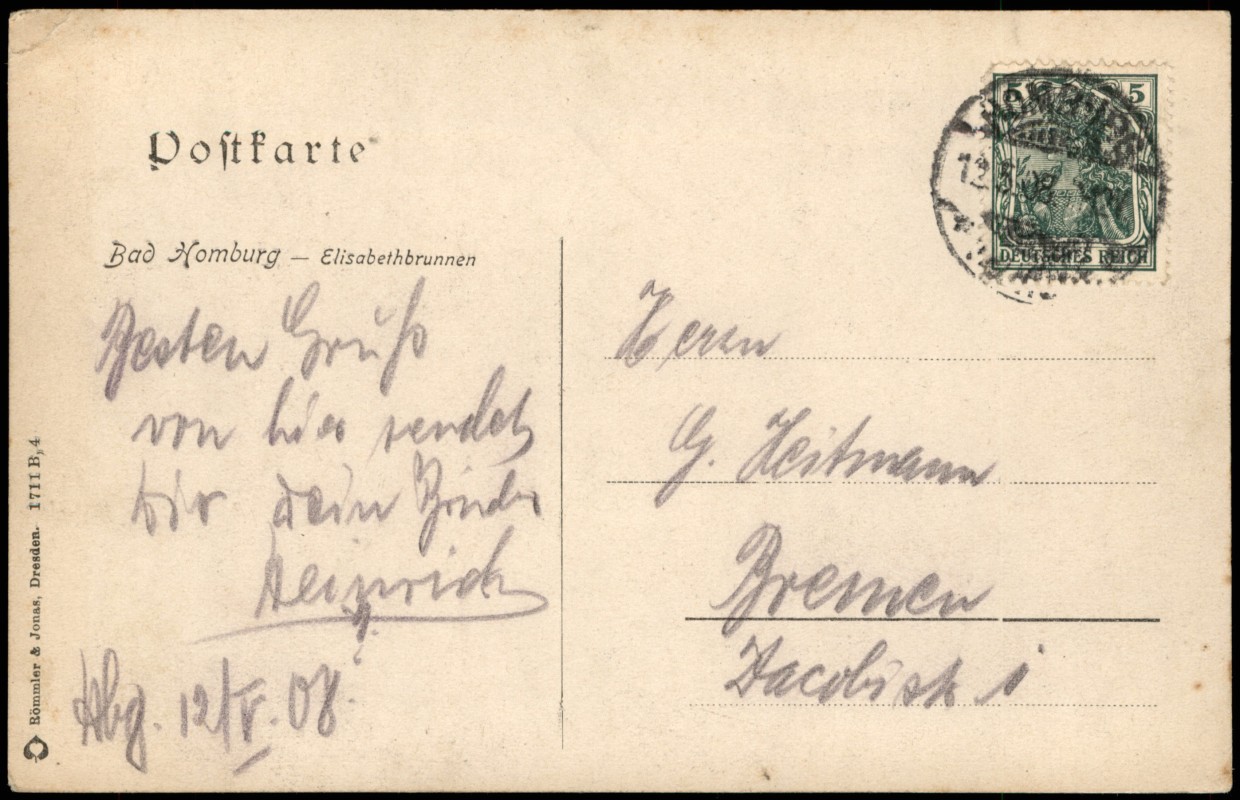 Postkarte
Bad Homburg — Elisabethbrunnen
Besten Gruß
von hier sendet
dir dein Bruder
Heinrich
Hbg. 12/V. 08.
Herrn
G. Heitmann
Bremen
Jacobistr. 1
5 5
DEUTSCHES REICH
12.5.08
Römmler & Jonas, Dresden. 1711 B, 4